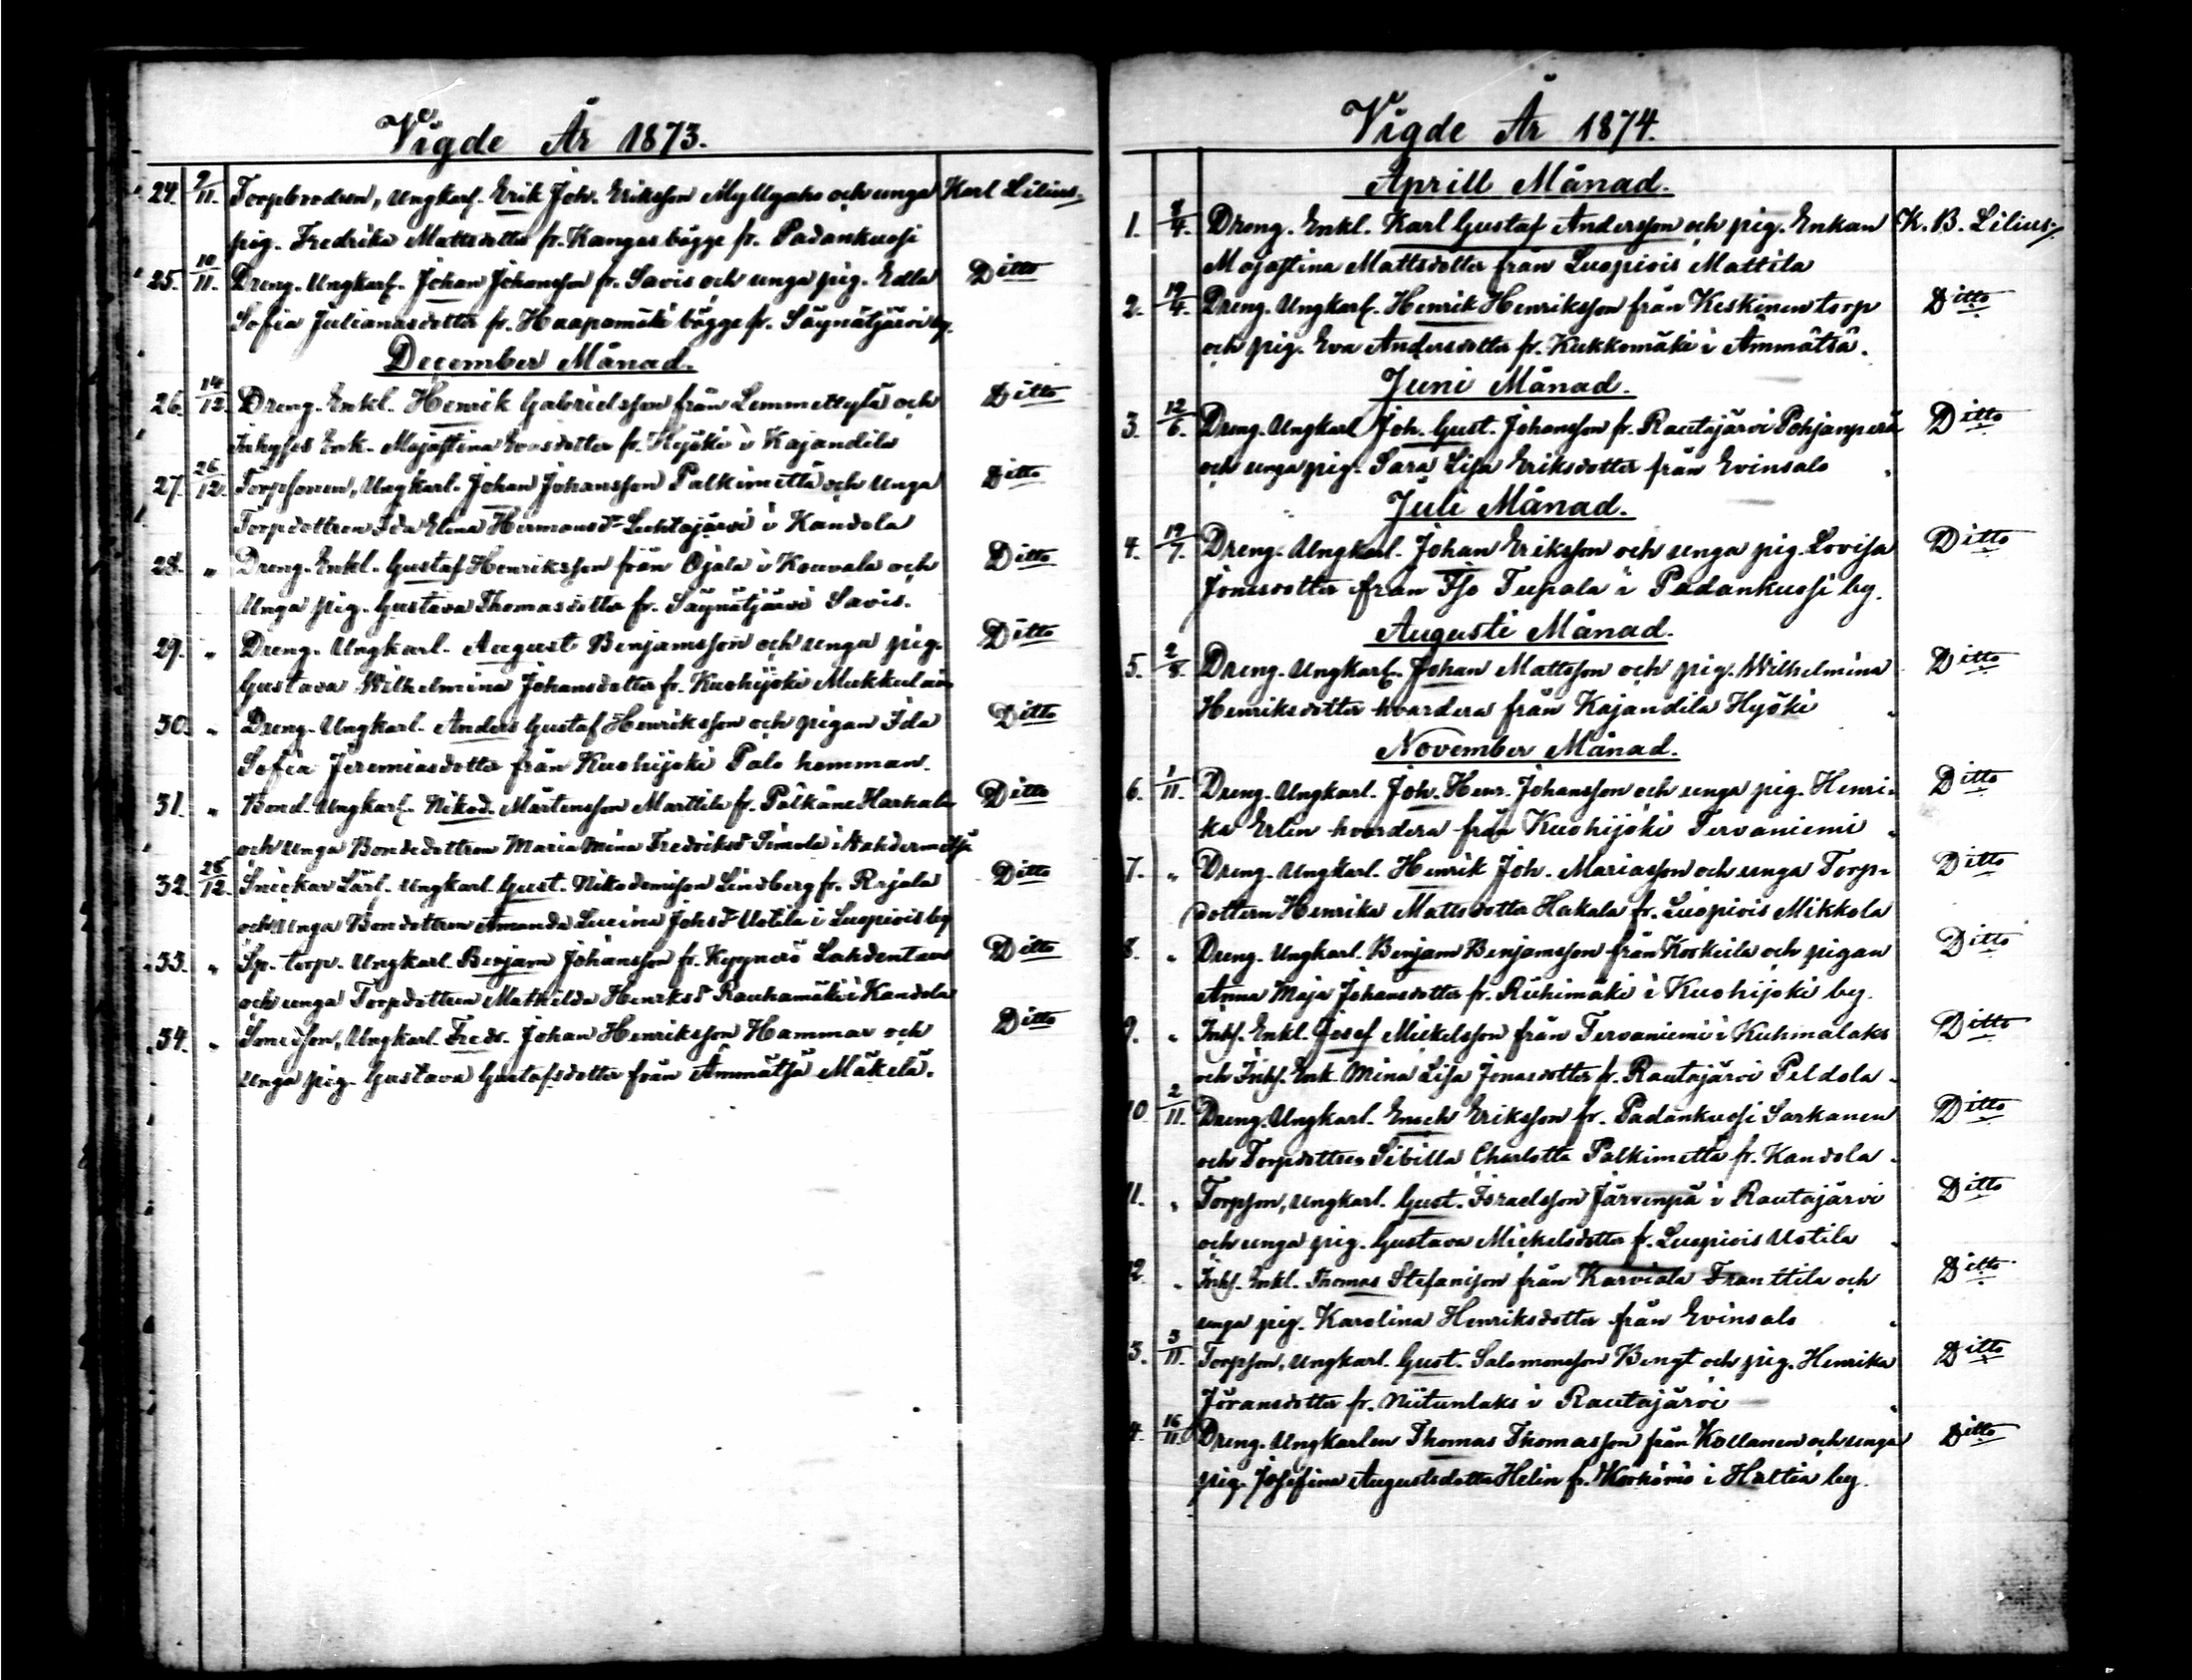 Vigde År 1873.
24. 9/11. Torpbrodren, Ungkarl. Erik Joh. Eriksson Myllyaho och unga Karl Lilius.
pig. Fredrika Mattsdotter fr. Kangas bägge fr. Padankuosi
25. 10/11. Dreng. Ungkarl. Johan Johansson fr. Savis och unga pig. Edla Ditto
Sofia Julianasdotter fr. Haapamäki bägge fr. Säynätjärvi by.
December Månad.
26. 14/12. Dreng. Enkl. Henrik Gabrielsson från Lemmettylä och Ditto
Inhyses Enk. Majastina Evasdotter fr. Hyöki i Kajandila
27. 26/12. Torpsonen, Ungkarl. Johan Johansson Palkimetta och Unga Ditto
Torpdottren Ida Elina Hermansdr Luhtajärvi i Kandola
28. " Dreng. Enkl. Gustaf Henriksson från Ojala i Kouvala och Ditto
Unga pig. Gustava Thomasdotter fr. Säynätjärvi Savis.
29. " Dreng. Ungkarl. August Benjamsson och unga pig. Ditto
Gustava Wilhelmina Johansdotter fr. Kuohijoki
30. " Dreng. Ungkarl. Anders Gustaf Henriksson och pigan Ida Ditto
Sofia Jeremiasdotter från Kuohijoki Palo hemman.
31. " Bond. Ungkarl. Nikod. Mårtensson Marttila fr. Pälkäne Harhala Ditto
och Unga Bondedottren Maria Mina Fredriksd Simola i
32. 28/12. Snickar Lärl. Ungkarl. Gust. Nikodemisson Lindberg fr. Rajala Ditto
och Unga Bondottren Amanda Lucina Johsd Uotila i Luopiois by
33. " Sp. torp. Ungkarl. Benjam Johansson fr. Kyynerö Lahdentaus Ditto
och unga Torpdottren Mathilda Henriksd Rauhamäki i Kandola
34. " Smedson, Ungkarl. Fredr. Johan Henriksson Hammar och Ditto
unga pig. Gustava Gustafsdotter från Ämmätsä Mäkelä.
Vigde År 1874.
Aprill Månad.
1. 4. Dreng. Enkl. Karl Gustaf Andersson och pig. Enkan K. B. Lilius.
Majastina Mattsdotter från Luopiois Mattila
2. 19/4. Dreng. Ungkarl. Henrik Henriksson från Keskinen torp Ditto
och pig. Eva Andersdotter fr. Kukkomäki i Ämmätsä.
Juni Månad.
3. 12/6. Dreng. Ungkarl Joh. Gust. Johansson fr. Rautajärvi Pohjanperä Ditto
och unga pig. Sara Lisa Eriksdotter från Evinsalo
Juli Månad.
4. 19/7. Dreng. Ungkarl. Johan Eriksson och unga pig. Lovisa Ditto
Jonasdotter från Iso Tupala i Padankuosi by.
Augusti Månad.
5. 2/8. Dreng. Ungkarl. Johan Mattsson och pig. Wilhelmina Ditto
Henriksdotter hvardera från Kajandila Hyöki
November Månad.
6. 1/11. Dreng. Ungkarl. Joh. Henr. Johansson och unga pig. Henri- Ditto
ka Erlin hvardera från Kuohijoki Tervaniemi
7. " Dreng. Ungkarl. Henrik Joh. Mariasson och unga Torp- Ditto
dottern Henrika Mattsdotter Hakala fr. Luopiois Mikkola
8. " Dreng. Ungkarl. Benjam Benjamsson från Korkeila och pigan Ditto
Anna Maja Johansdotter fr. Riihimäki i Kuohijoki by.
9. " Inhs. Enkl. Josef Mickelsson från Tervaniemi i Kuhmalaks Ditto
och Inhs. Enk. Mina Lisa Jonasdotter fr. Rautajärvi Peldola.
10. 2/11. Dreng. Ungkarl. Enoch Eriksson fr. Padankuosi Sarkanen Ditto
och Torpdottren Sibilla Charlotta Palkimetta fr. Kandola.
11. " Torpson, Ungkarl. Gust. Israelsson Järvenpä i Rautajärvi Ditto
och unga pig. Gustava Mickelsdotter f. Luopiois Uotila
12. " Inhs. Enkl. Thomas Stefanisson från Karviala Franttila och Ditto
unga pig. Karolina Henriksdotter från Evinsalo
3. 3/11. Torpson, Ungkarl. Gust. Salomonsson Bengt och pig. Henrika Ditto
Jöransdotter fr. Niitunlaks i Rautajärvi
4. 16/11. Dreng. Ungkarlen Thomas Thomasson från Kollanen och unga Ditto
pig. Josefina Augustsdotter Helin fr. i Haltia by.